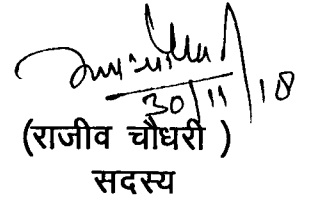 30/11/18
(राजीव चौधरी )
सदस्य